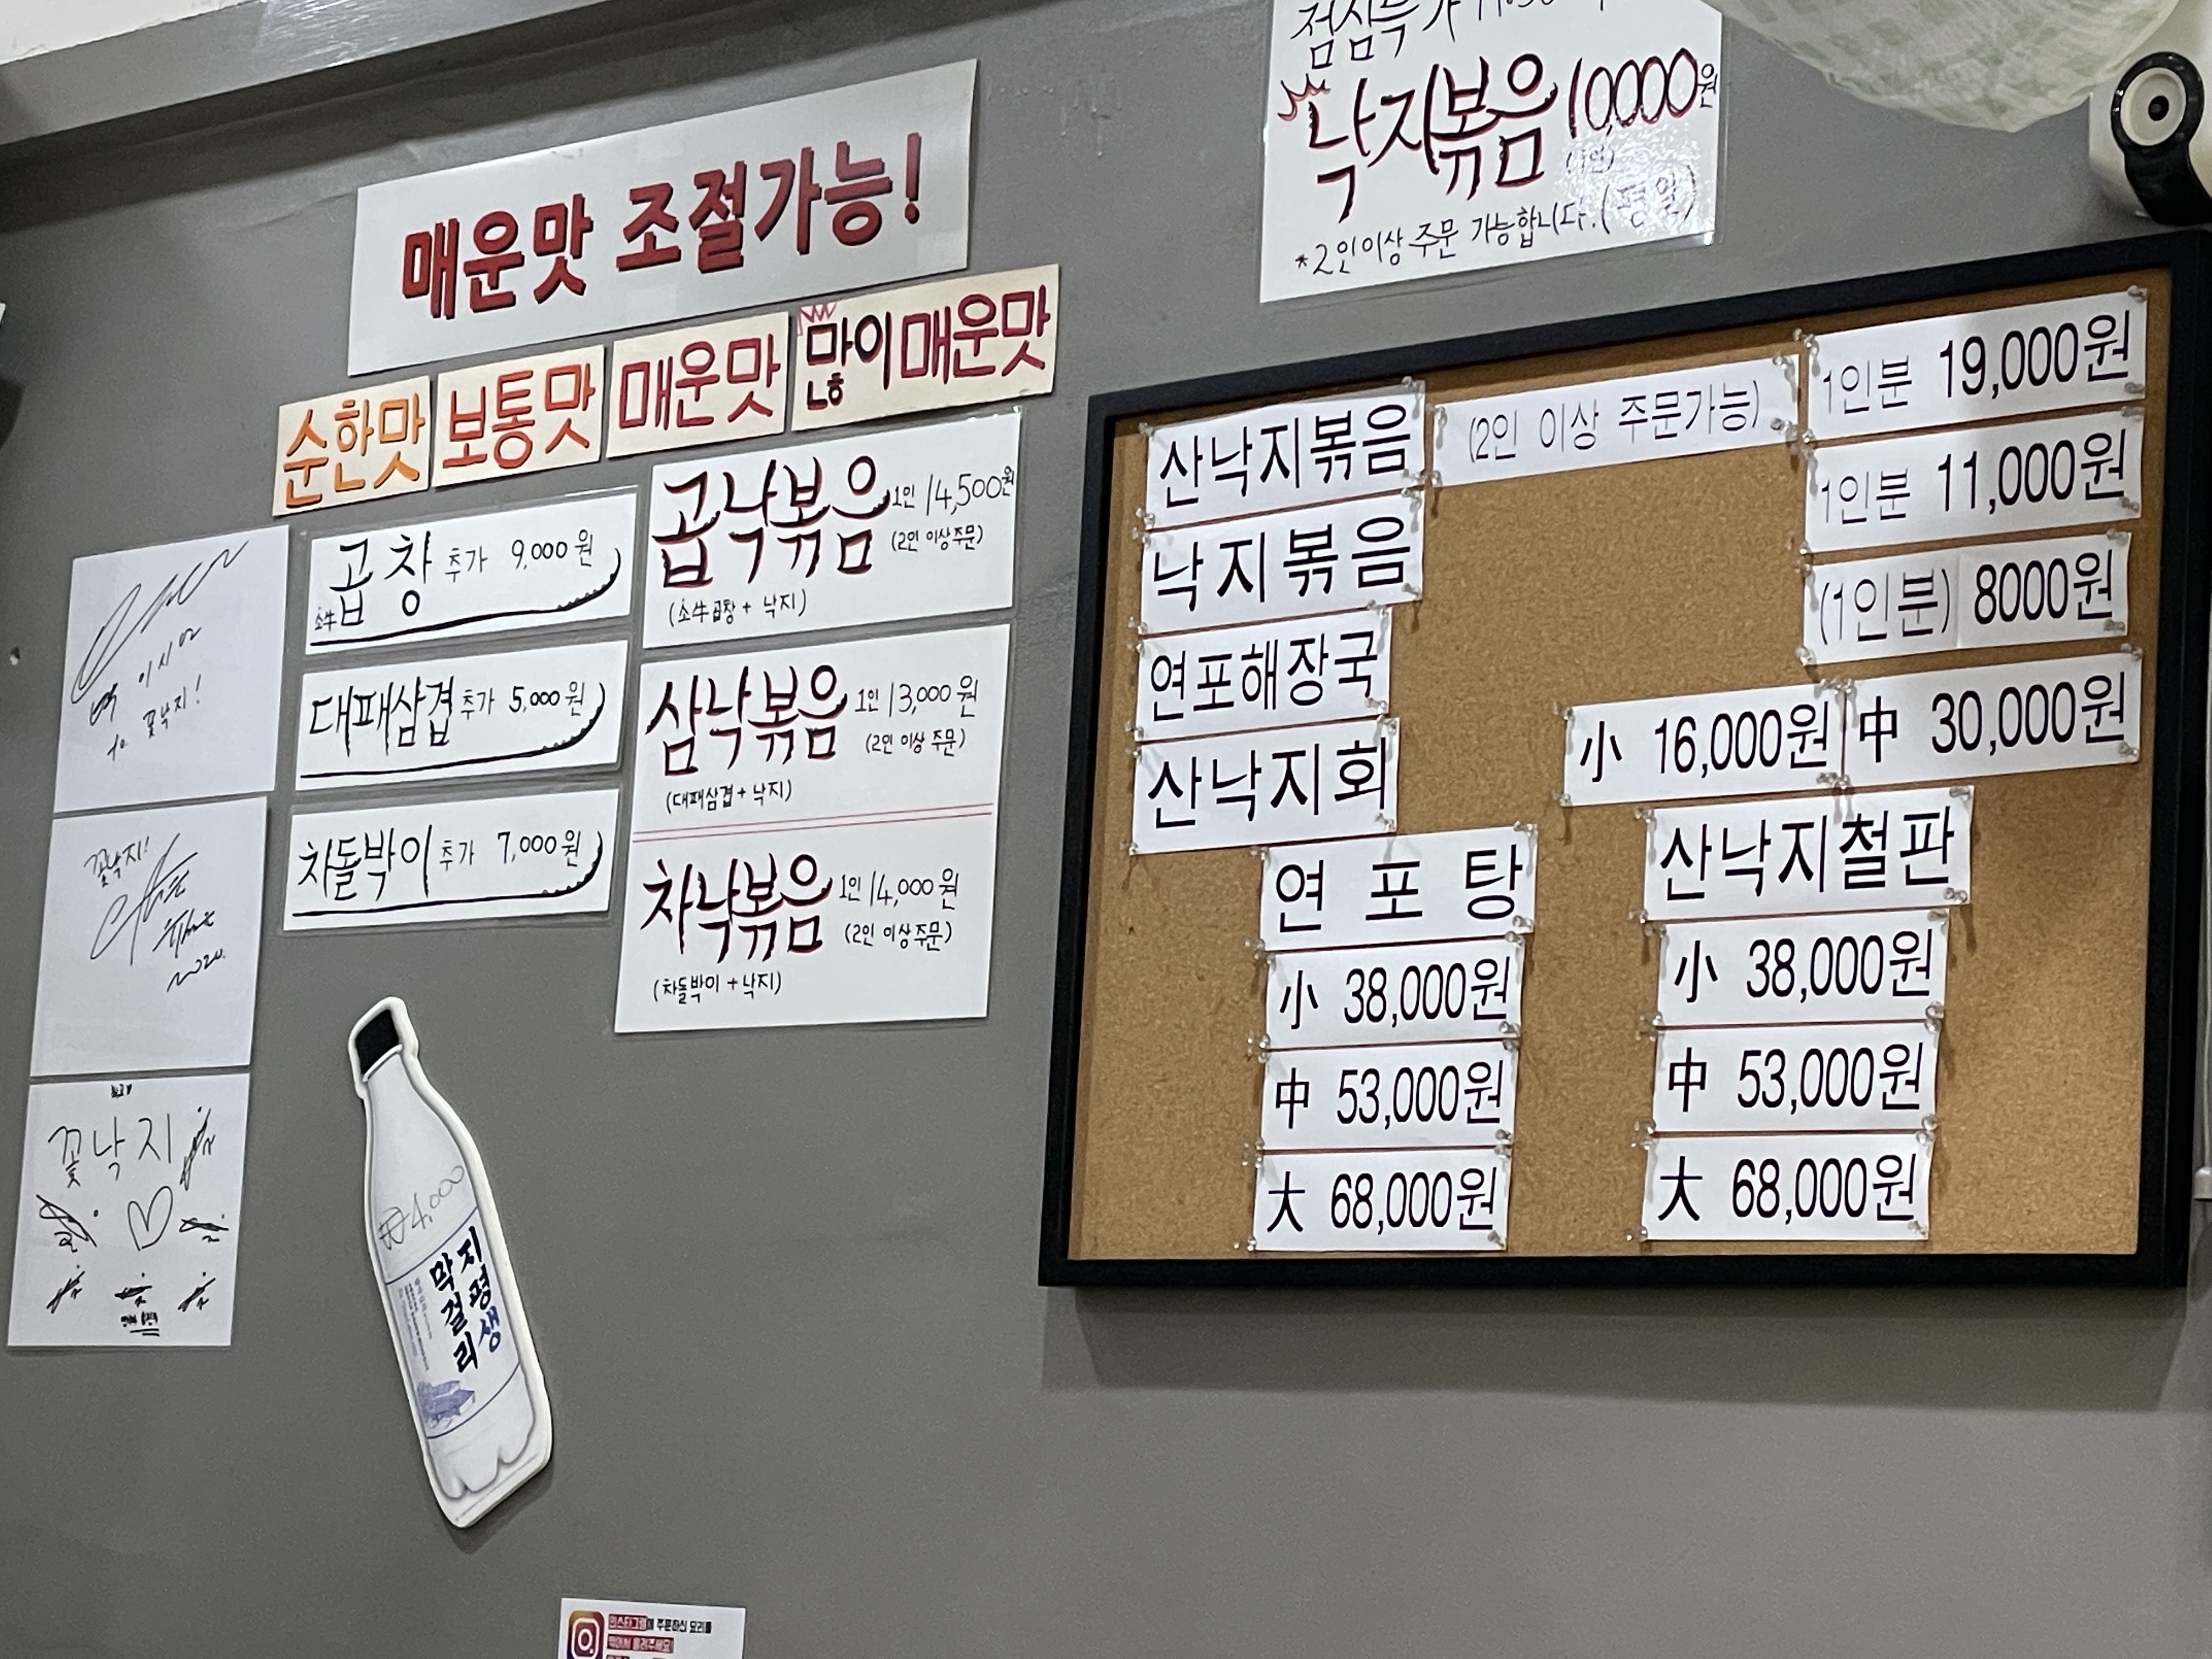 매운맛 조절가능!
순한맛
보통맛
매운맛
많이 매운맛
소牛곱창 추가 9,000원
대패삼겹 추가 5,000원
차돌박이 추가 7,000원
곱낙볶음 1인 14,500원
(2인 이상주문)
(소牛곱창 + 낙지)
삼낙볶음 1인 13,000원
(2인 이상 주문)
(대패삼겹 + 낙지)
차낙볶음 1인 14,000원
(2인 이상주문)
(차돌박이 + 낙지)
이시언
to 꽃낙지!
꽃낙지!
2020.
꽃낙지
₩4,000
지평생
막걸리
점심특가
낙지볶음 10,000원
(1인)
*2인이상 주문 가능합니다.(평일)
산낙지볶음 (2인 이상 주문가능) 1인분 19,000원
낙지볶음 1인분 11,000원
연포해장국 (1인분) 8000원
산낙지회 小 16,000원 中 30,000원
연 포 탕
小 38,000원
中 53,000원
大 68,000원
산낙지철판
小 38,000원
中 53,000원
大 68,000원
인스타그램에 주문하신 요리를
찍어서 올려주세요!